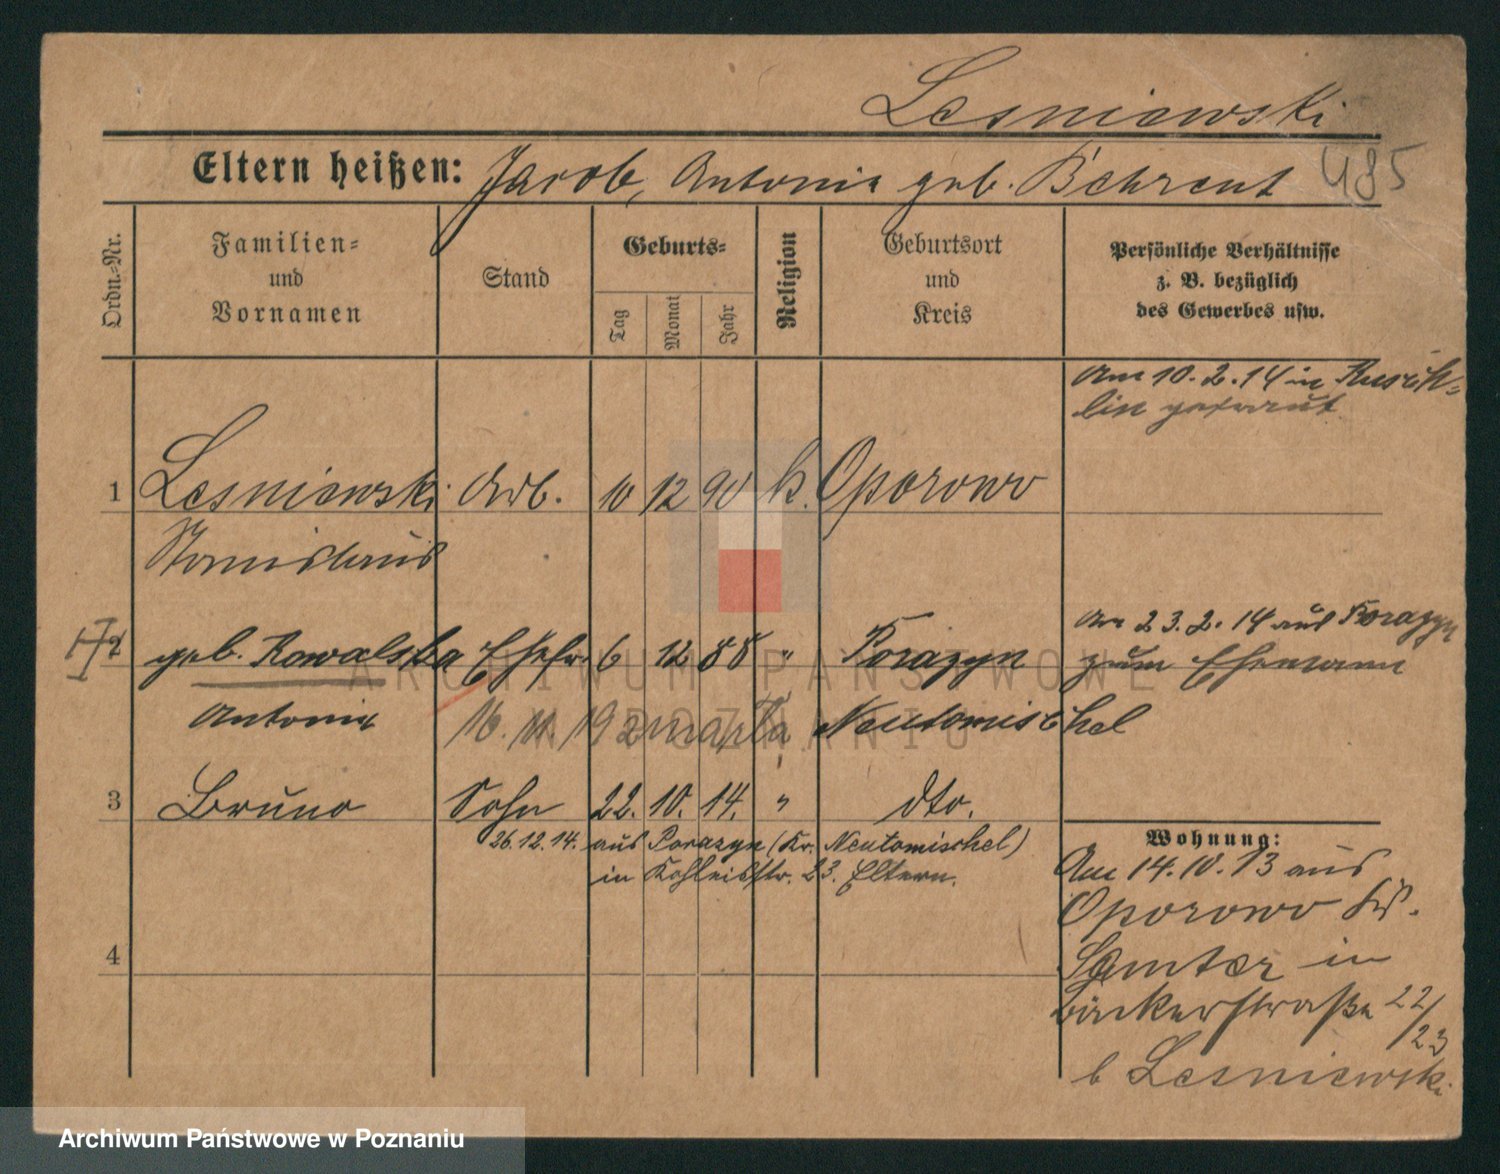 Lesniewski
Eltern heißen: Jacob, Antonie geb. Behrent 485
Ordn.-Nr.
Familien=
und
Vornamen
Stand
Geburts=
Tag
Monat
Jahr
Religion
Geburtsort
und
Kreis
Persönliche Verhältnisse
z. B. bezüglich
des Gewerbes usw.
Am 10.2.14 in Kuschlin getraut
1 Lesniewski Arb. 10 12 90 k. Oporowo
Stanislaus
2 geb. Kowalska Ehefr. 6 12 88 " Porazyn
Am 23.2.14 aus Porazyn
zum Ehemann
Antonie 16. 11. 192 zmarła Neutomischel
3 Bruno Sohn 22. 10. 14. " dto.
26.12.14. aus Porazyn (Kr. Neutomischel)
in Kohleisstr. 23. Eltern.
4
Wohnung:
Am 14.10.13 aus
Oporowo Krs.
Samter in
Bäckerstraße 22/23
b Lesniewski
ARCHIWUM PAŃSTWOWE
W POZNANIU
Archiwum Państwowe w Poznaniu